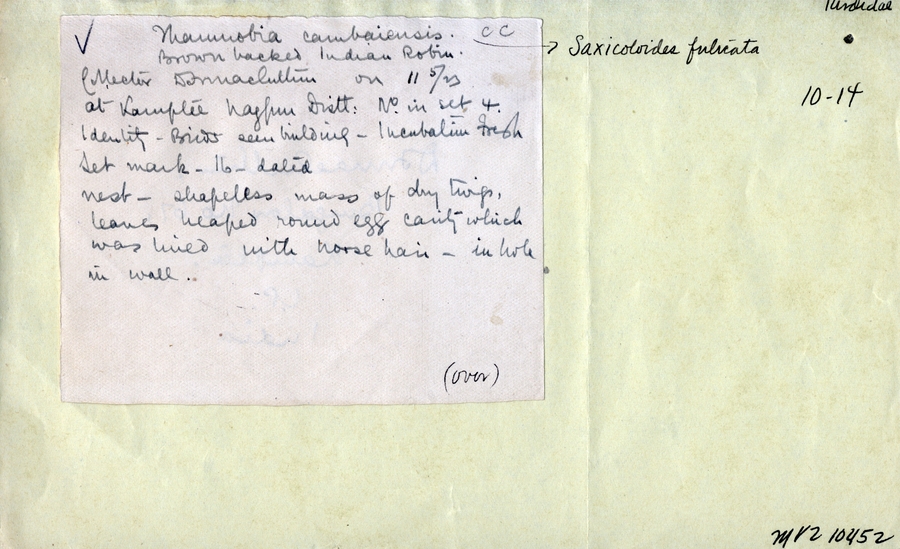 Turdidae
✓ Thamnobia cambaiensis. CC → Saxicoloides fulicata
Brown backed Indian Robin.
Collector on 11 5/23
at Kamptee Nagpur Distt: No in set 4.
Identity - Birds seen building - Incubation Fresh
Set mark - 16 - dated
nest - shapeless mass of dry twigs,
leaves heaped round egg cavity which
was lined with horse hair - in hole
in wall.
(over)
10-14
MVZ 10452